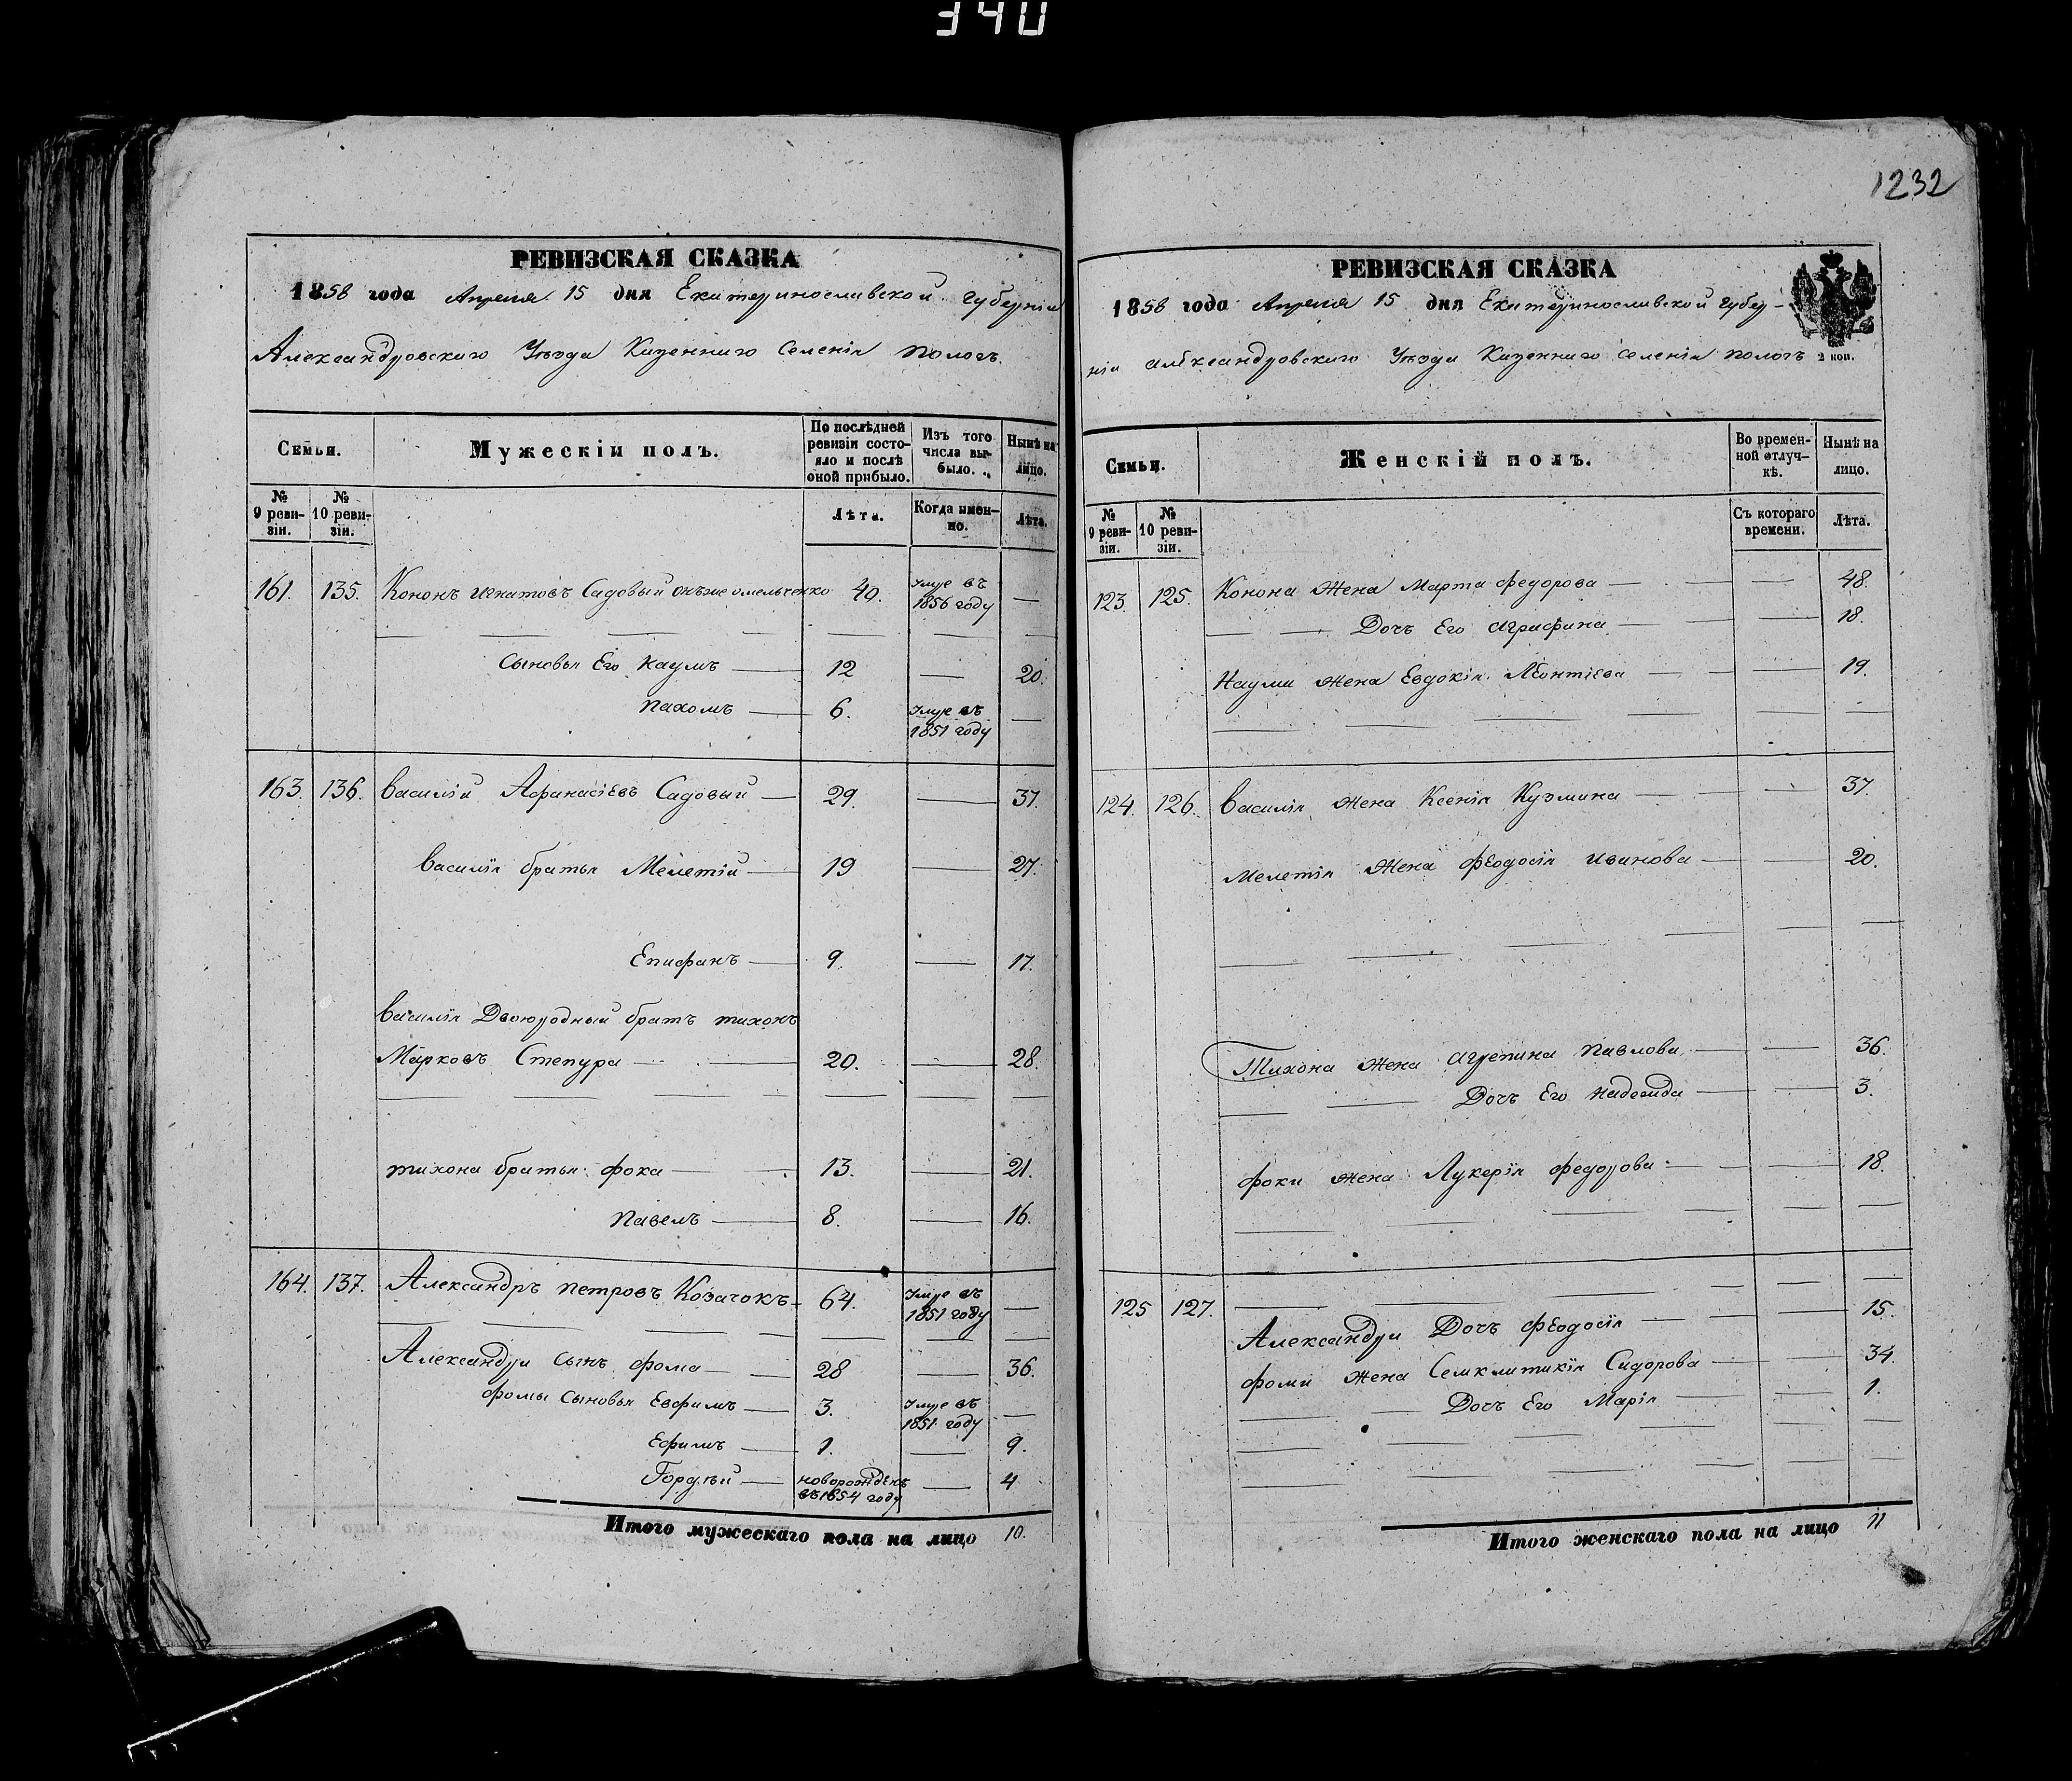 340
1232
РЕВИЗСКАЯ СКАЗКА
1858 года Апреля 15 дня Екатеринославской губерніи
Александровскаго Уѣзда Казеннаго Селенія Пологъ.
Семьи.
Мужескій полъ.
По послѣдней ревизіи состояло и послѣ оной прибыло.
Изъ того числа выбыло.
Нынѣ на лицо.
№ 9 ревизіи.
№ 10 ревизіи.
Лѣта.
Когда именно.
Лѣта.
161. 135. Кононъ Игнатовъ Садовый онъже омельченко 40. умре въ 1856 году —
Сыновья Его Наумъ — 12 — 20.
Пахомъ — 6. умре въ 1851 году —
163. 136. Василій Афанасіевъ Садовый — 29. — 37.
Василія братья Мелетій — 19 — 27.
Епифанъ — 9. — 17.
Василія Двоюродный братъ тихонъ
Марковъ Степура — 20. — 28.
тихона братья фока — 13. — 21.
Павелъ — 8. — 16.
164. 137. Александръ петровъ Козачокъ — 64. умре въ 1851 году —
Александра сынъ фома — 28 — 36.
фомы сыновья Евфимъ — 3. умре въ 1851 году —
Ефимъ — 1. — 9.
Гордѣй — новорожденъ въ 1854 году — 4
Итого мужескаго пола на лицо 10.
РЕВИЗСКАЯ СКАЗКА
1858 года Апреля 15 дня Екатеринославской губер-
ніи александровскаго Уѣзда Казеннаго селенія пологъ
2 коп.
Семьи.
Женскій полъ.
Во временной отлучкѣ.
Нынѣ на лицо.
№ 9 ревизіи.
№ 10 ревизіи.
Съ котораго времени.
Лѣта.
123. 125. Конона Жена Марта федорова — — 48.
Дочь Его Аграфина — — 18.
Наума жена Евдокія Леонтіева — — 19.
124. 126. Василія жена Ксенія Кузмина — — 37.
Мелетія Жена феодосія иванова — — 20.
Тихона жена агрепина Павлова — — 36.
Дочь Его надежда — — 3.
фоки жена Лукерія федорова — — 18.
125 127.
Александра Дочь феодосія — — 15.
фоми жена Сидорова — — 34.
Дочь Его Марія — — 1.
Итого женскаго пола на лицо 11